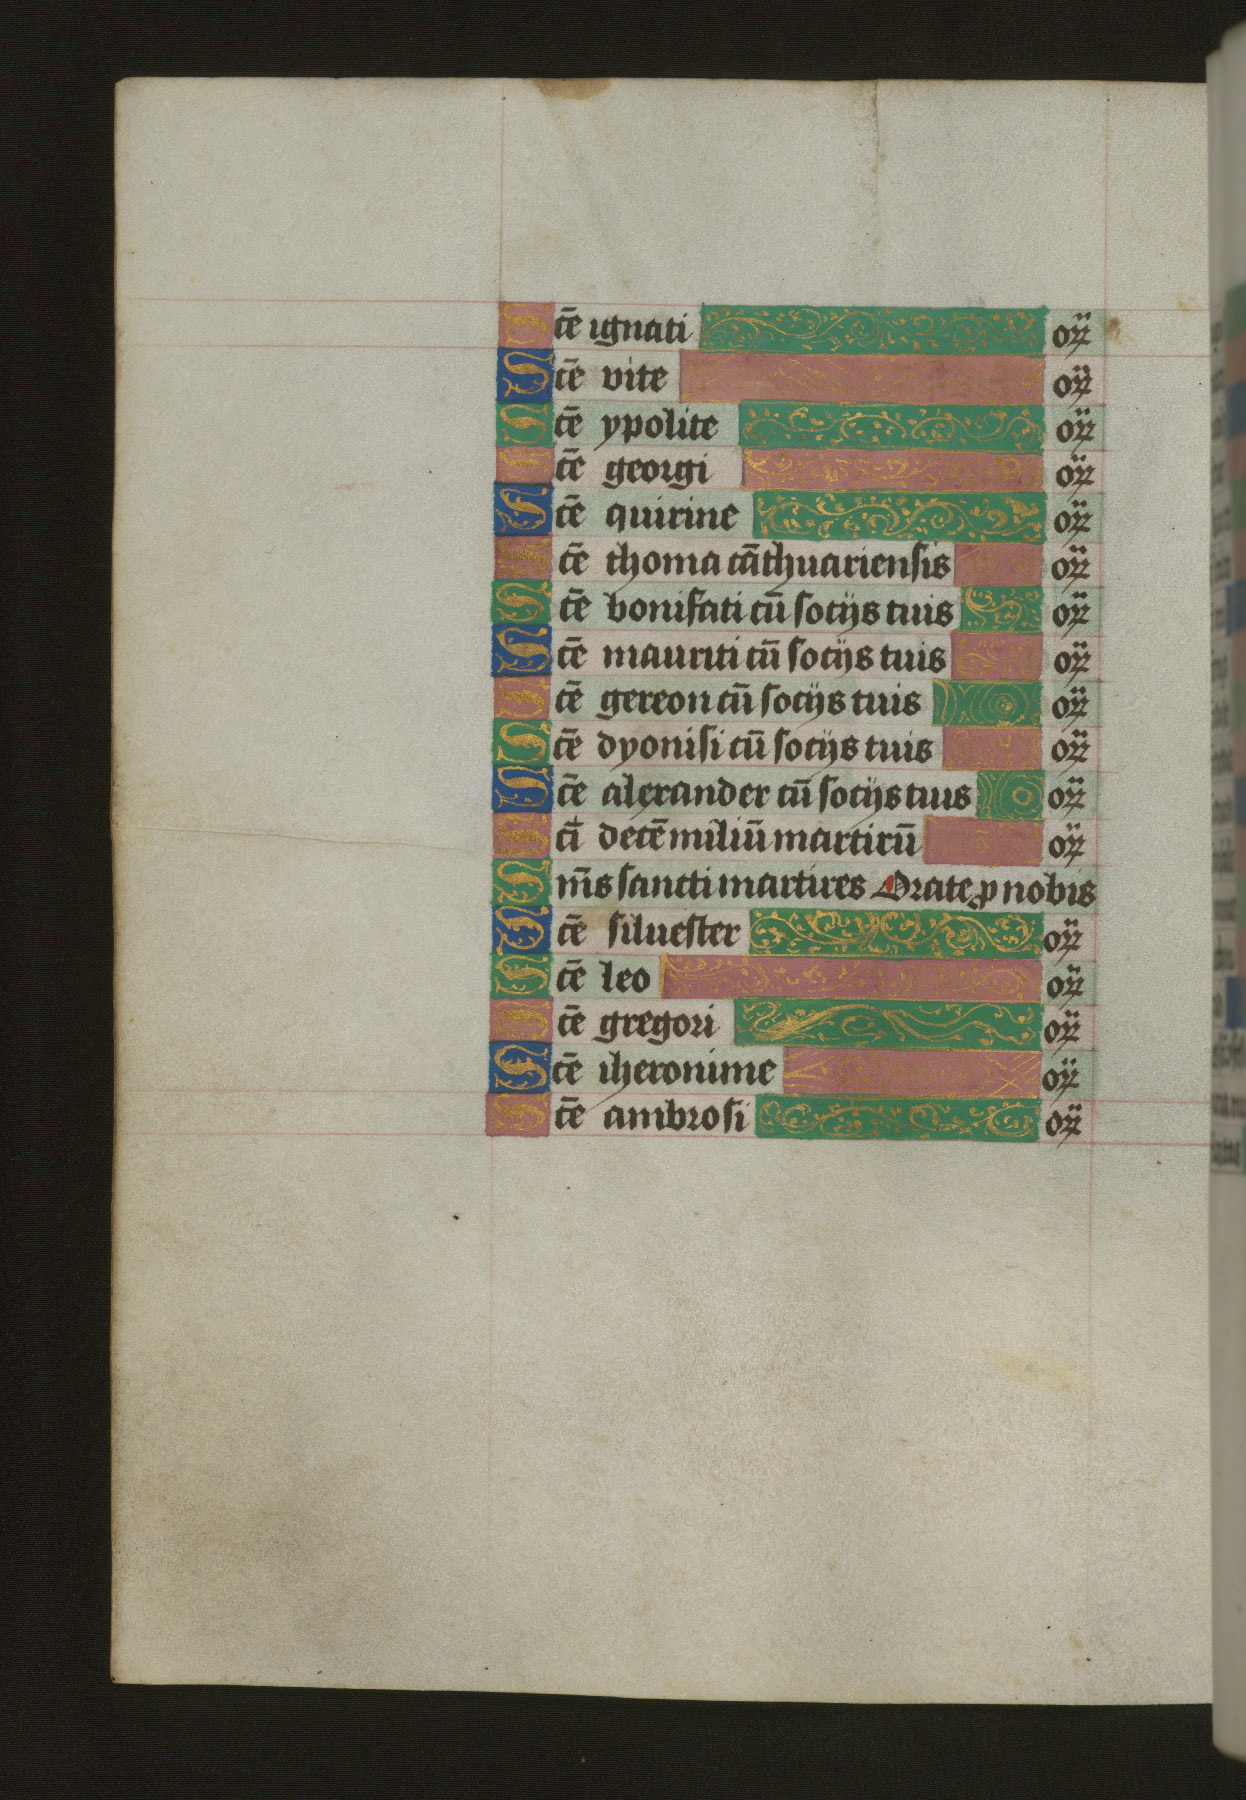 Scē ignati or̄
Scē vite or̄
Scē ypolite or̄
Scē georgi or̄
Scē quirine or̄
Scē thoma cāthuariensis or̄
Scē bonifati cū socijs tuis or̄
Scē mauriti cū socijs tuis or̄
Scē gereon cū socijs tuis or̄
Scē dyonisi cū socijs tuis or̄
Scē alexander cū socijs tuis or̄
Scī decē miliū martirū or̄
Sm̄s sancti martires Orate ꝓ nobis
Scē siluester or̄
Scē leo or̄
Scē gregori or̄
Scē iheronime or̄
Scē ambrosi or̄